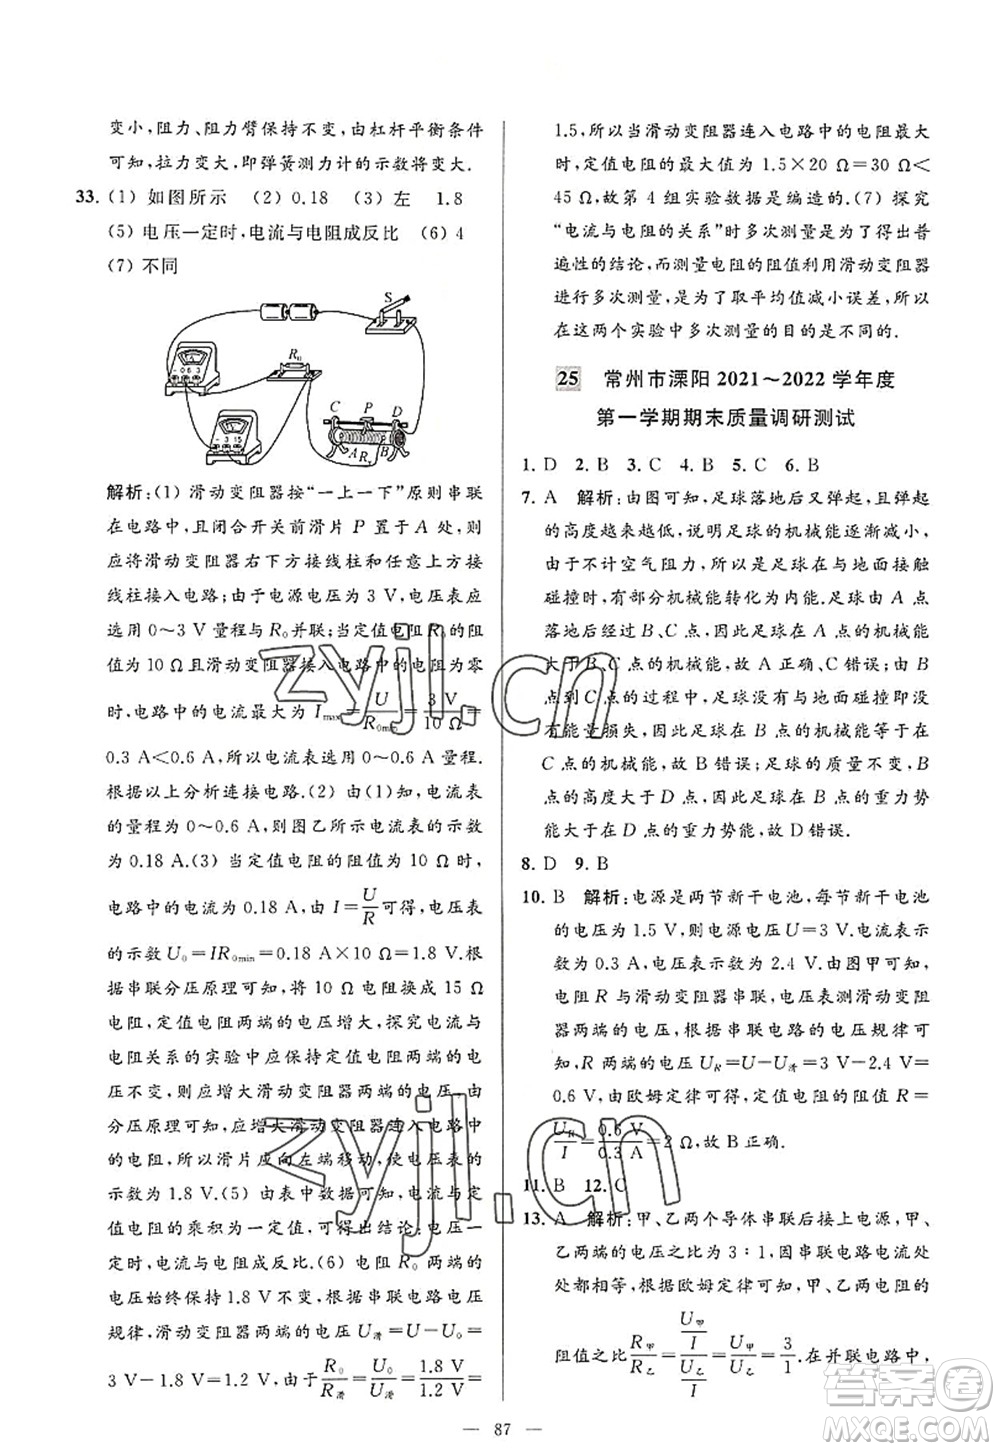 变小,阻力、阻力臂保持不变,由杠杆平衡条件
可知,拉力变大,即弹簧测力计的示数将变大.
33. (1) 如图所示 (2) 0.18 (3) 左 1.8
(5) 电压一定时,电流与电阻成反比 (6) 4
(7) 不同
S
A
-0.6 3
R₀
V
-3 15
C P D
A R B
解析:(1) 滑动变阻器按“一上一下”原则串联
在电路中,且闭合开关前滑片 P 置于 A 处,则
应将滑动变阻器右下方接线柱和任意上方接
线柱接入电路;由于电源电压为 3 V,电压表应
选用 0～3 V 量程与 R₀ 并联;当定值电阻 R₀ 的阻
值为 10 Ω 且滑动变阻器接入电路的电阻为零
时,电路中的电流最大为 Imax = U/R0min = 3 V/10 Ω =
0.3 A＜0.6 A,所以电流表选用 0～0.6 A 量程.
根据以上分析连接电路.(2) 由(1)知,电流表
量程为 0～0.6 A,则图乙所示电流表的示数
为 0.18 A.(3) 当定值电阻的阻值为 10 Ω 时,
电路中的电流为 0.18 A,由 I = U/R 可得,电压表
的示数 U₀ = IR0min = 0.18 A×10 Ω = 1.8 V.根
据串联分压原理可知,将 10 Ω 电阻换成 15 Ω
电阻,定值电阻两端的电压增大,探究电流与
电阻关系的实验中应保持定值电阻两端的电
压不变,则应增大滑动变阻器两端的电压,由
分压原理可知,应增大滑动变阻器连入电路中
的电阻,所以滑片应向左端移动,使电压表的
示数为 1.8 V.(5) 由表中数据可知,电流与定
值电阻的乘积为一定值,可得出结论:电压一定
时,电流与电阻成反比.(6) 电阻 R₀ 两端的
电压始终保持 1.8 V 不变,根据串联电路电压
规律,滑动变阻器两端的电压 U滑 = U－U₀ =
3 V－1.8 V = 1.2 V.由于 R₀/R滑 = U₀/U滑 = 1.8 V/1.2 V =
1.5,所以当滑动变阻器连入电路中的电阻最大
时,定值电阻的最大值为 1.5×20 Ω = 30 Ω＜
45 Ω,故第 4 组实验数据是编造的.(7) 探究
“电流与电阻的关系”时多次测量,是为了得出普
遍性的结论,而测量电阻的阻值利用滑动变阻器
进行多次测量,是为了取平均值减小误差,所以
在这两个实验中多次测量的目的是不同的.
25 常州市溧阳 2021～2022 学年度
第一学期期末质量调研测试
1. D 2. B 3. C 4. B 5. C 6. B
7. A 解析:由图可知,足球落地后又弹起,且弹起
的高度越来越低,说明足球的机械能逐渐减小,
由于不计空气阻力,所以是足球在与地面接触
碰撞时,有部分机械能转化为内能.足球由 A 点
落地后弹至 B、C 点,因此足球在 A 点的机械能
大于 B、C 点的机械能,故 A 正确、C 错误;由 B
点到 C 点的过程中,足球没有与地面碰撞即没
有能量损失,因此足球在 B 点的机械能等于
C 点的机械能,故 B 错误;足球的质量不变,B
点的高度大于 D 点,因此足球在 B 点的重力势
能大于在 D 点的重力势能,故 D 错误.
8. D 9. B
10. B 解析:电源是两节新干电池,每节新干电池
的电压为 1.5 V,则电源电压 U = 3 V,电流表示
数为 0.3 A,电压表示数为 2.4 V.由图甲可知,
电阻 R 与滑动变阻器串联,电压表测滑动变阻
器两端的电压,根据串联电路的电压规律可
知,R 两端的电压 UR = U－U滑 = 3 V－2.4 V =
0.6 V,由欧姆定律可得,定值电阻的阻值 R =
UR/I = 0.6 V/0.3 A = 2 Ω,故 B 正确.
11. B 12. C
13. A 解析:甲、乙两个导体串联后接上电源,甲、
乙两端的电压之比为 3∶1,因串联电路电流处
处都相等,根据欧姆定律可知,甲、乙两电阻的
阻值之比 R甲/R乙 = (U甲/I)/(U乙/I) = U甲/U乙 = 3/1.在并联电路中,
— 87 —
zyjl.cn
zyjl.cn
答案圈
MXQE.COM